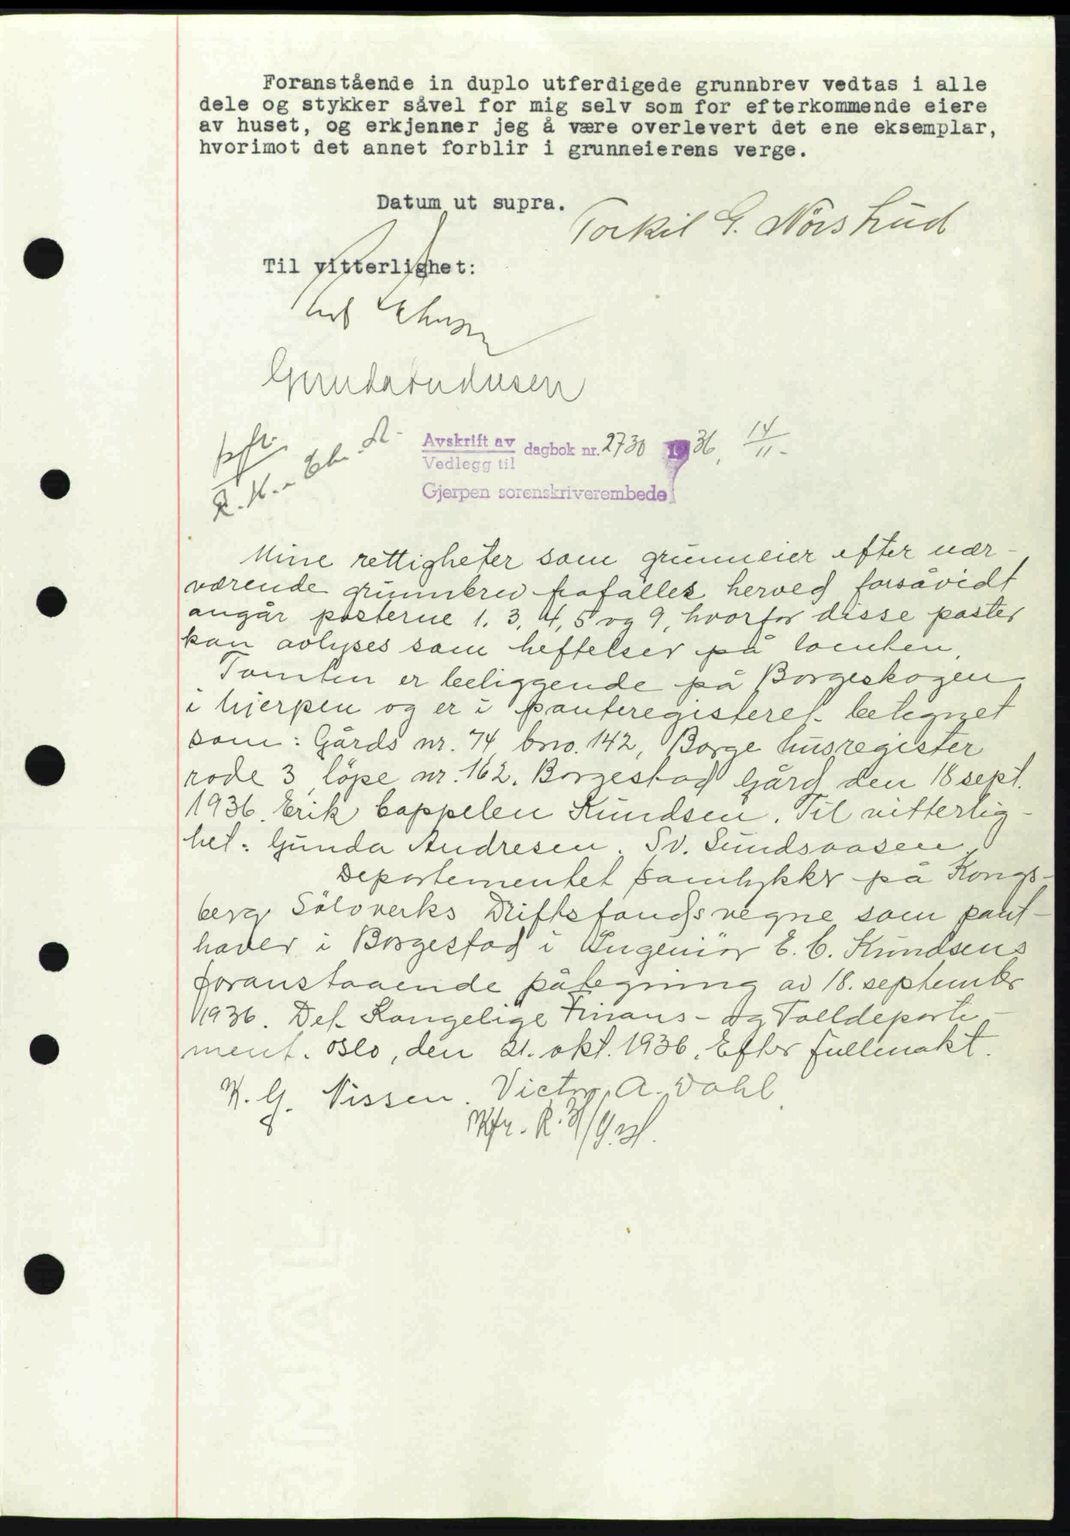 Foranstående in duplo utferdigede grunnbrev vedtas i alle
dele og stykker såvel for mig selv som for efterkommende eiere
av huset, og erkjenner jeg å være overlevert det ene eksemplar,
hvorimot det annet forblir i grunneierens verge.
Datum ut supra.
Torkil G. Nørstrud
Til vitterlighet:
Avskrift av
Vedlegg til
dagbok nr. 2730 1936, 14/11-
Gjerpen sorenskriverembede
Mine rettigheter som grunneier efter nær-
værende grunnbrev frafalles herved forsåvidt
angår posterne 1. 3, 4, 5 og 9, hvorfor disse poster
kan avlyses som heftelser på tomten.
Tomten er beliggende på Borgeskogen
i Gjerpen og er i panteregisteret betegnet
som: Gårds nr. 74, bno. 142, Borge husregister
rode 3, löpe nr. 162. Borgestad Gård den 18 sept.
1936. Erik Cappelen Knudsen. Til vitterlig-
het: Gunda Andresen. Sv. Sundsaasen.
Departementet samtykker på Kongs-
berg Sölvverks Driftsfonds vegne som pant-
haver i Borgestad i Ingeniör E. C. Knudsens
foranstaaende påtegning av 18. september
1936. Det Kongelige Finans- og Tolldeparte-
ment. Oslo, den 21. okt. 1936. Efter fullmakt.
K. G. Nissen. Victor A. Dahl.